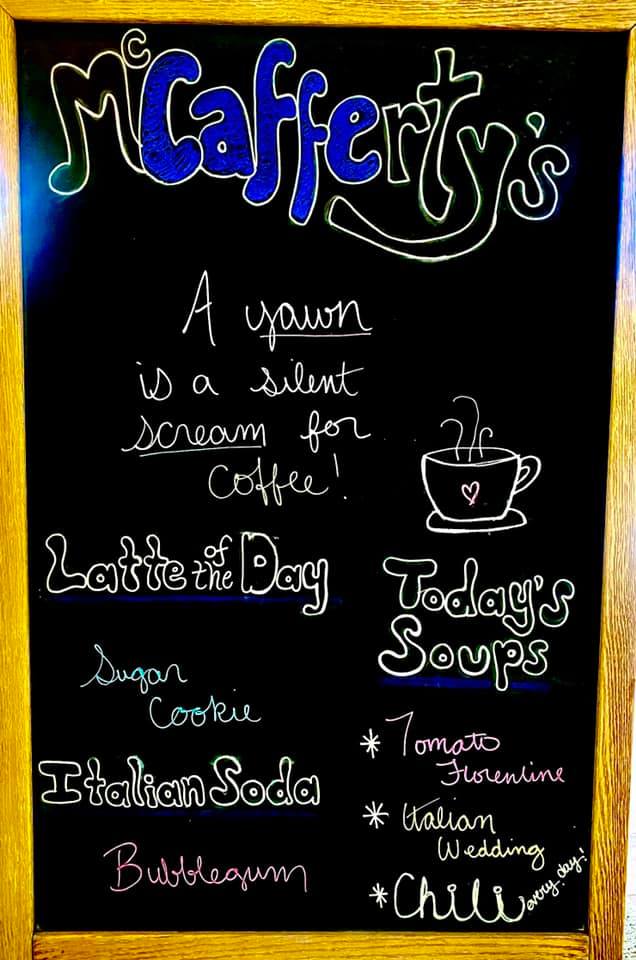 McCafferty's
A yawn
is a silent
scream for
coffee!
Latte of the Day
Sugar
Cookie
Italian Soda
Bubblegum
Today's
Soups
* Tomato
Florentine
* Italian
Wedding
* Chili every day!